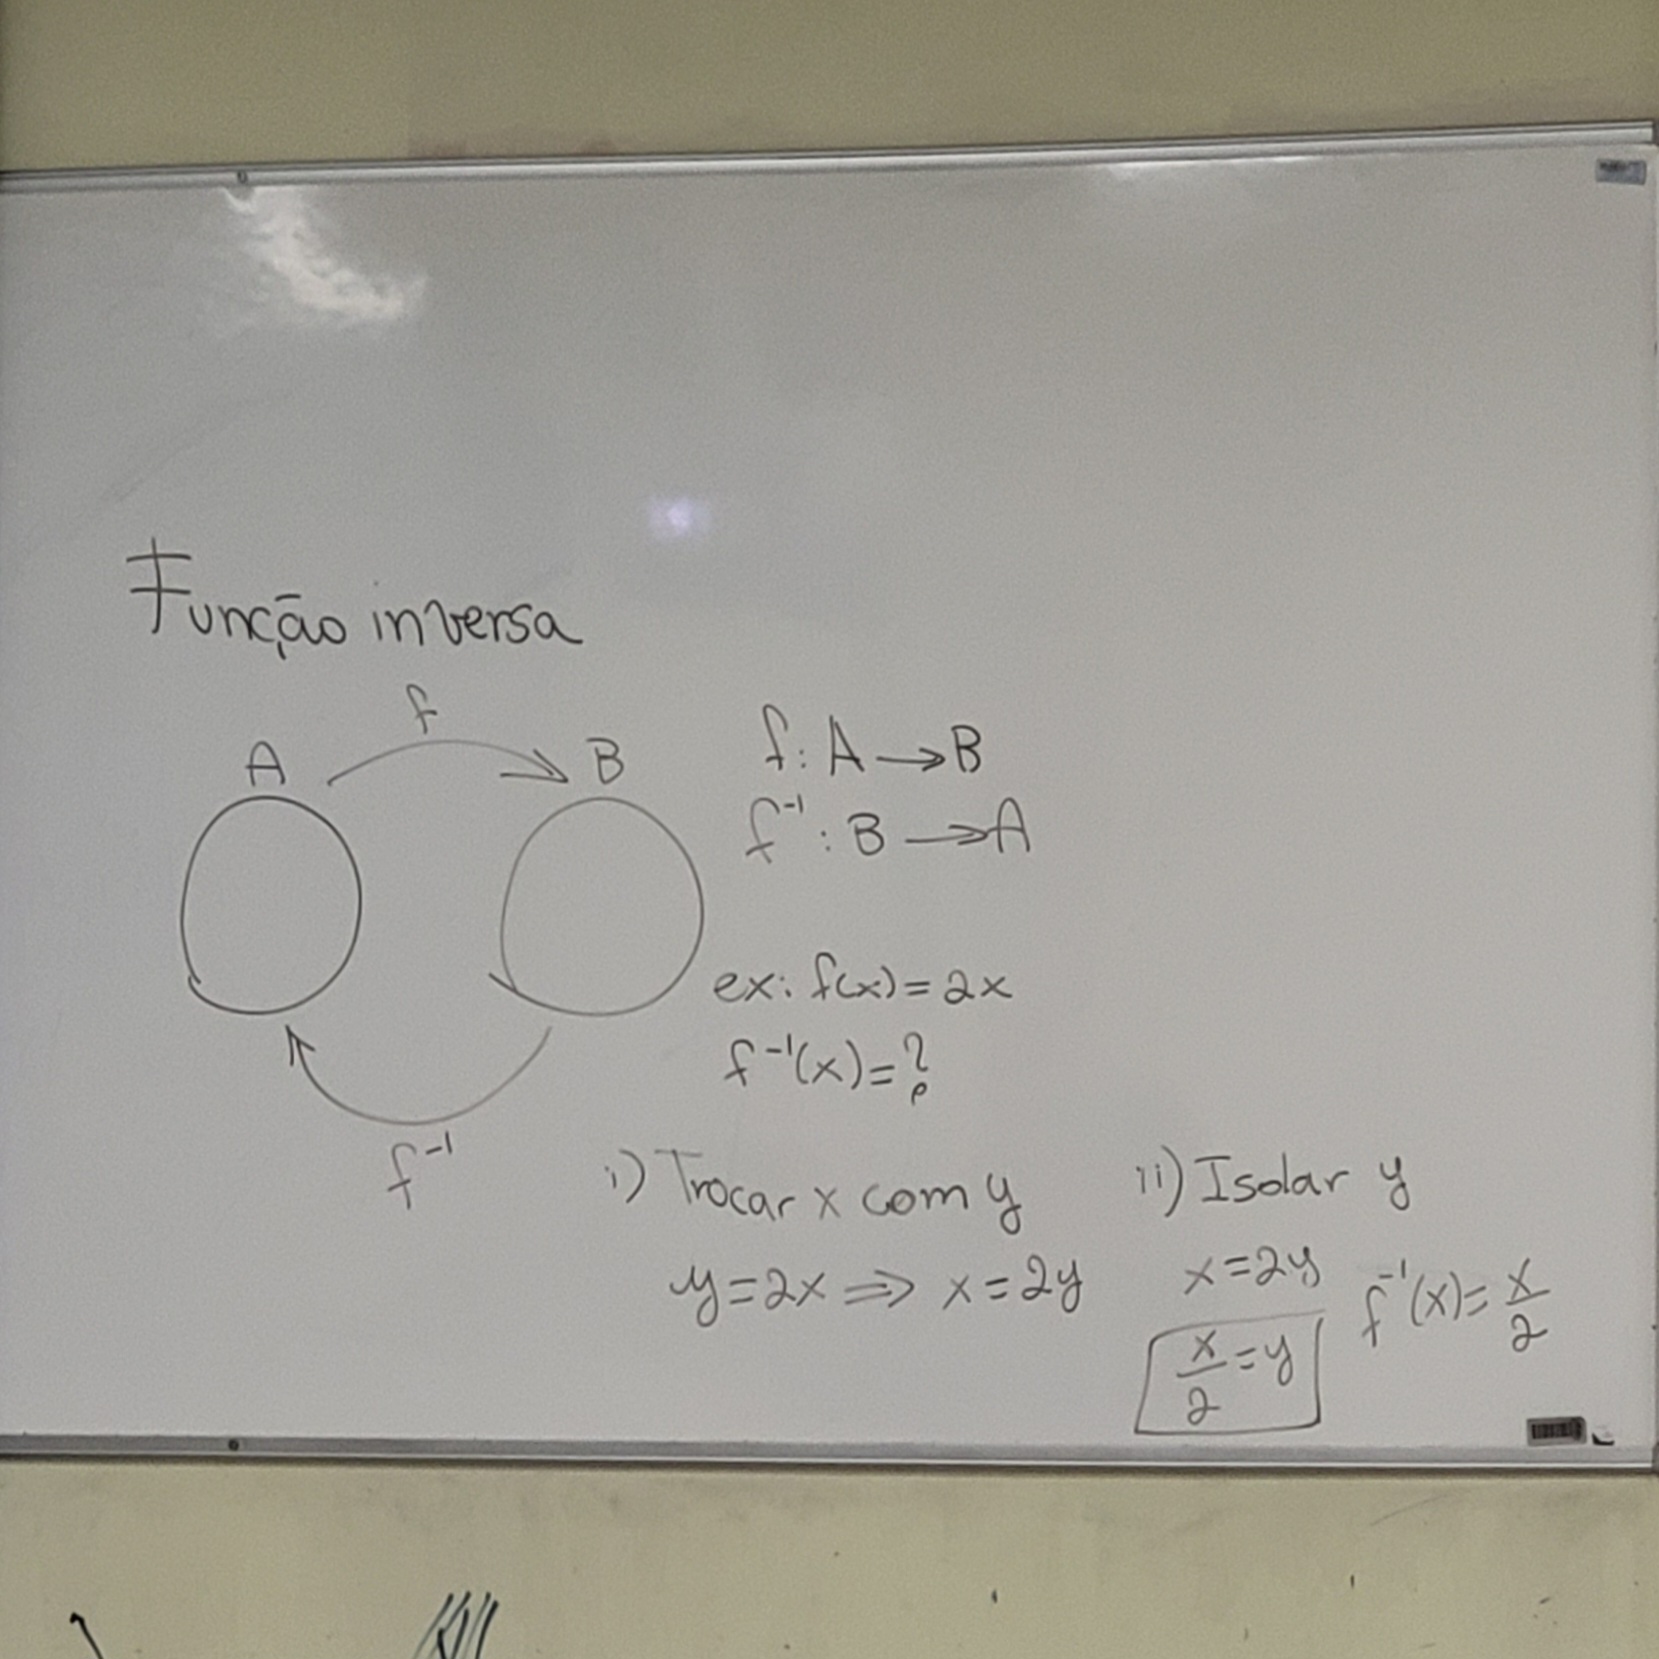 Função inversa
f
A B
f⁻¹
f: A → B
f⁻¹: B → A
ex: f(x) = 2x
f⁻¹(x) = ?
i) Trocar x com y
y = 2x ⇒ x = 2y
ii) Isolar y
x = 2y
x/2 = y
f⁻¹(x) = x/2